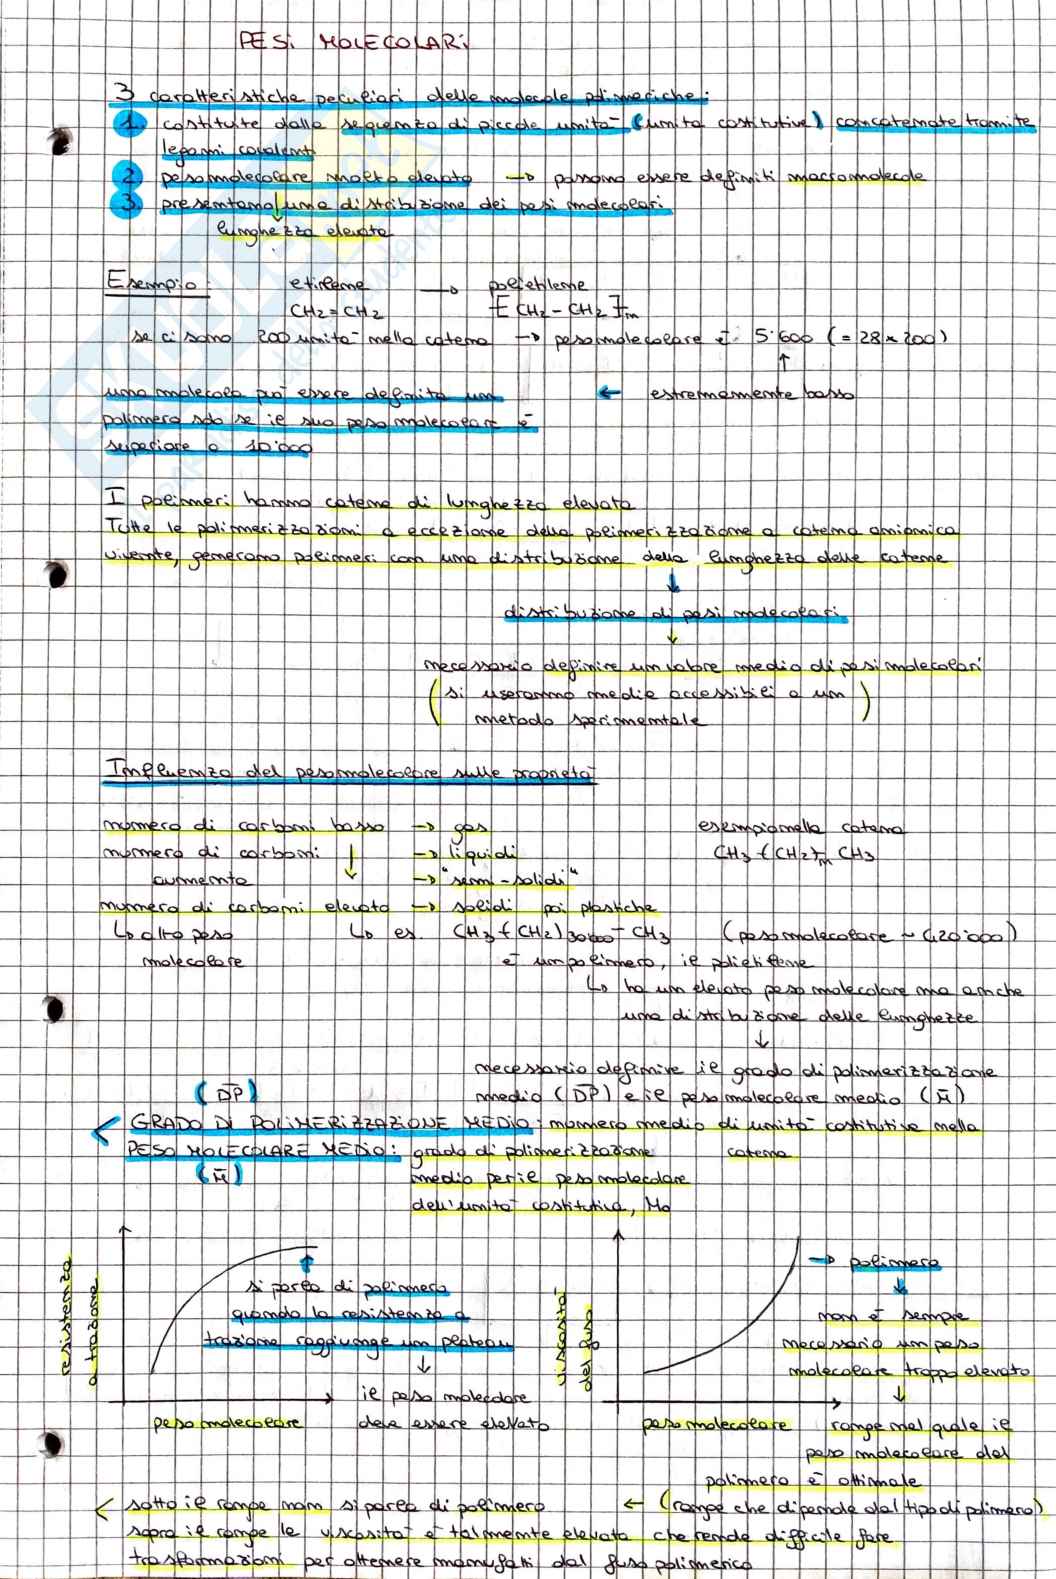 PESI MOLECOLARI
3 caratteristiche peculiari delle molecole polimeriche:
1. costituite dalla sequenza di piccole unità (unità costitutive) concatenate tramite
legami covalenti
2. peso molecolare molto elevato → possono essere definiti macromolecole
3. presentano una distribuzione dei pesi molecolari
lunghezza elevata
Esempio: etilene → polietilene
CH2=CH2 [CH2-CH2]n
se ci sono 200 unità nella catena → peso molecolare è 5'600 (=28×200)
↑
una molecola può essere definita un ← estremamente basso
polimero solo se il suo peso molecolare è
superiore a 10'000
I polimeri hanno catene di lunghezza elevata
Tutte le polimerizzazioni a eccezione della polimerizzazione a catena anionica
vivente, generano polimeri con una distribuzione della lunghezza delle catene
↓
distribuzione di pesi molecolari
↓
necessario definire un valore medio di pesi molecolari
(si useranno medie accessibili a un
metodo sperimentale)
Influenza del peso molecolare sulle proprietà
numero di carboni basso → gas esempio nella catena
numero di carboni ↓ → liquidi CH3-(CH2)n-CH3
aumenta → "semi-solidi"
numero di carboni elevato → solidi poi plastiche
↳ alto peso ↳ es. CH3-(CH2)30000-CH3 (peso molecolare ~ 420'000)
molecolare è un polimero, il polietilene
↳ ha un elevato peso molecolare ma anche
una distribuzione delle lunghezze
↓
necessario definire il grado di polimerizzazione
(D̅P̅) medio (D̅P̅) e il peso molecolare medio (M̅)
GRADO DI POLIMERIZZAZIONE MEDIO: numero medio di unità costitutive nella
PESO MOLECOLARE MEDIO: grado di polimerizzazione catena
(M̅) medio per il peso molecolare
dell'unità costitutiva, Mo
resistenza
a trazione
si parla di polimero
quando la resistenza a
trazione raggiunge un plateau
↓
il peso molecolare
deve essere elevato
peso molecolare
viscosità
del fuso
peso molecolare
→ polimero
↓
non è sempre
necessario un peso
molecolare troppo elevato
↓
range nel quale il
peso molecolare del
polimero è ottimale
← (range che dipende dal tipo di polimero)
< sotto il range non si parla di polimero
sopra il range la viscosità è talmente elevata che rende difficile fare
trasformazioni per ottenere manufatti dal fuso polimerico